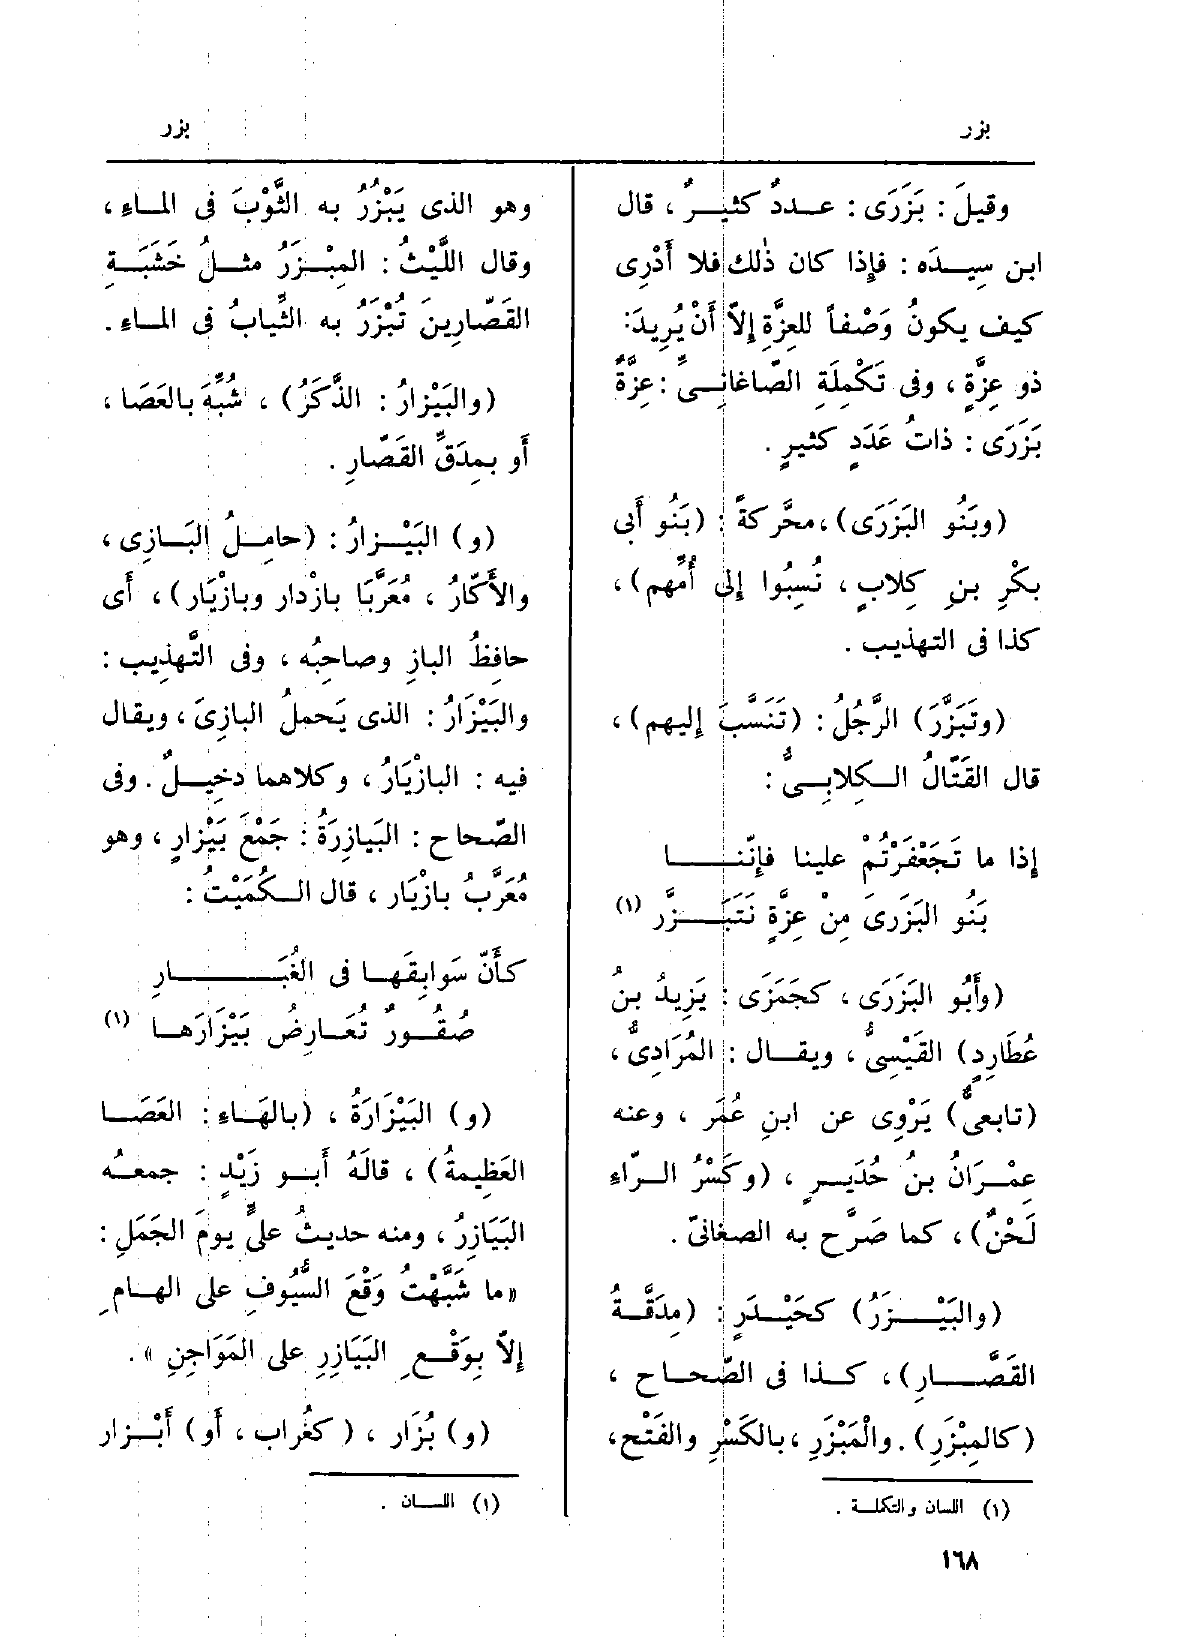 بزر
بزر
وقيلَ : بَزَرَى : عــددٌ كثيــرٌ ، قال
ابن سِيــدَه : فإِذا كان ذٰلك فلا أَدْرِى
كيف يكونُ وَصْفاً للعِزَّةِ إِلاّ أَنْ يُرِيدَ:
ذو عِزَّةٍ ، وفى تَكْمِلَةِ الصّاغانِــىِّ : عِزَّةٌ
بَزَرَى : ذاتُ عَدَدٍ كثيرٍ .
(وبَنُو البَزَرَى)، محَّركةً : (بَنُو أَبى
بكْرِ بنِ كِلابٍ ، نُسِبُوا إِلى أُمِّهم)،
كذا فى التهذيب .
(وتَبَزَّرَ) الرَّجُلُ : (تَنَسَّبَ إِليهم) ،
قال القَتّالُ الــكلابِــىُّ :
إِذا ما تَجَعْفَرْتُمْ علينا فإِنّنــــا
بَنُو البَزَرىَ مِنْ عِزَّةٍ نَتَبَــزَّر (١)
(وأَبُو البَزَرَى ، كجَمَزَى : يَزِيدُ بنُ
عُطَارِدٍ) القَيْسِىُّ ، ويقــال : المُرَادِىُّ ،
(تابعىٌّ) يَرْوِى عن ابنِ عُمَر ، وعنه
عِمْــرَانُ بنُ حُدَيــرٍ ، (وكَسْرُ الــرّاءِ
لَحْنٌ) ، كما صَرَّح به الصغانىّ .
(والبَيْــــزَرُ) كحَيْدَرٍ : (مِدَقَّــةُ
القَصَّــــارِ) ، كــذا فى الصّحــاح ،
(كالمِبْزَرِ) . والْمَبْزَرِ ، بالكَسْرِ والفَتْح،
(١) اللسان والتكلــة .
١٦٨
وهو الذى يَبْزُرُ به الثَّوْبَ فى المــاءِ ،
وقال اللَّيْثُ : المِبْــزَرُ مثــلُ خَشَبَــةِ
القَصّارِينَ تُبْزَرُ به الثِّيابُ فى المــاءِ .
(والبَيْزارُ : الذَّكَرُ) ، شُبِّهَ بالعَصَا ،
أَو بمِدَقِّ القَصّارِ .
(و) البَيْــزارُ : (حامِــلُ البَــازِى ،
والأَكّارُ ، مُعَرَّبَا بازْدار وبازْيَار) ، أَى
حافِظُ البازِ وصاحِبُه ، وفى التَّهذِيب :
والبَيْزَارُ : الذى يَحملُ البازِىَ ، ويقال
فيه : البازْيَارُ ، وكلاهما دخيــلٌ . وفى
الصّحاح : البَيازِرَةُ : جَمْعَ بَيْزارٍ ، وهو
مُعَرَّبُ بازْيَار ، قال الــكُمَيْتُ :
كأَنّ سَوابِقَهــا فى الغُبَــــــارِ
صُقُــورٌ تُعَــارِضُ بَيْزَارَهــا (١)
(و) البَيْزَارَةُ ، (بالهَاءِ : العَصَــا
العَظِيمةُ) ، قالَهُ أَبــو زَيْدٍ : جمعــه
البَيَازِرُ ، ومنه حديثُ علىٍّ يومَ الجَمَلِ :
«ما شَبَّهْتُ وَقْعَ السُّيُوفِ على الهــامِ
إِلاّ بِوَقْــعِ البَيَازِرِ على المَوَاجِنِ » .
(و) بُزَار ، (كغُراب ، أَو) أَبْــزار
(١) اللســان .